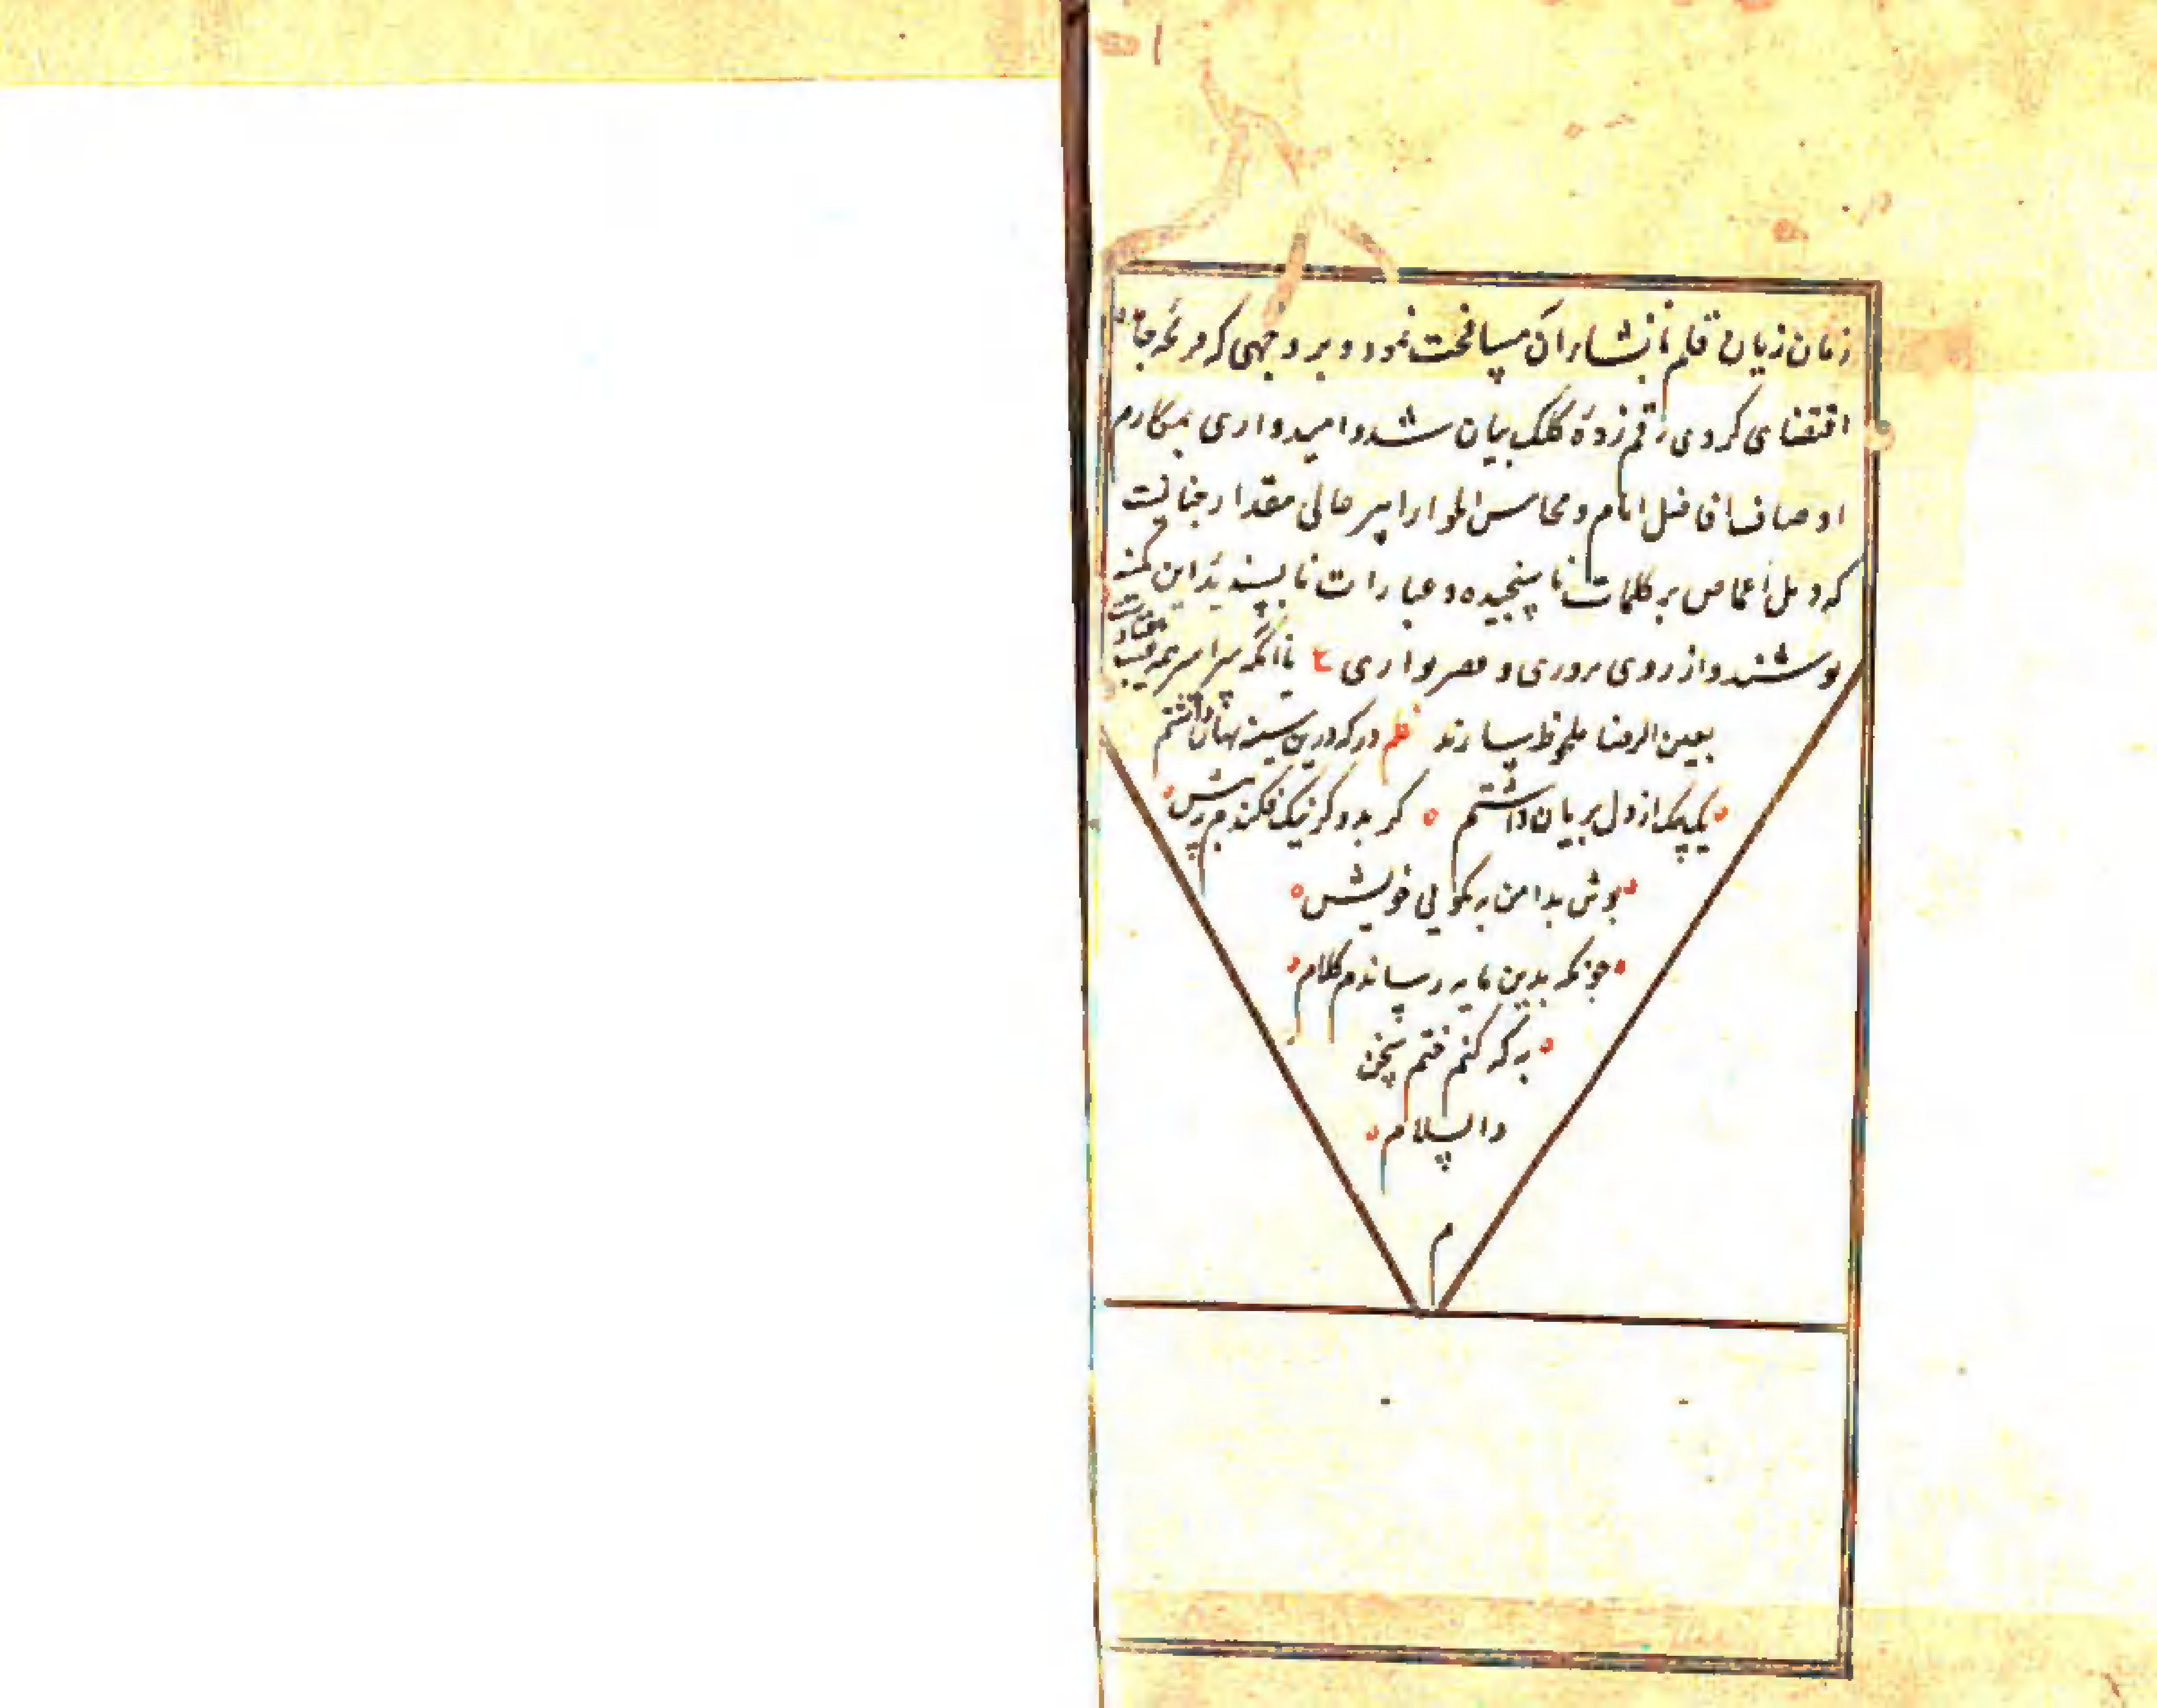 زمان زبان قلم بانشا ران مسامحت نمود و بر وجهی که قریحه
اقتضای کردی رقم زدهٔ کلک بیان شد و امیدواری بمکارم
اوصاف افاضل انام و محاسن اطوار امیر عالی مقدار چنانست
که ذیل اغماض بر کلمات ناسنجیده و عبارات ناپسندیدهٔ این کمینه
پوشند و از روی و ع باآنکه سراسر همه عیب
بعین الرضا ملحوظ سازند نظم در که درین سینه نهان داشتم
یکیک از دل بزبان داشتم گر بد و گر نیک فکندم
پوش بدامن نکویی خویش
چونکه بدین مایه رساندم کلام
به که کنم ختم سخن
والسلام
م